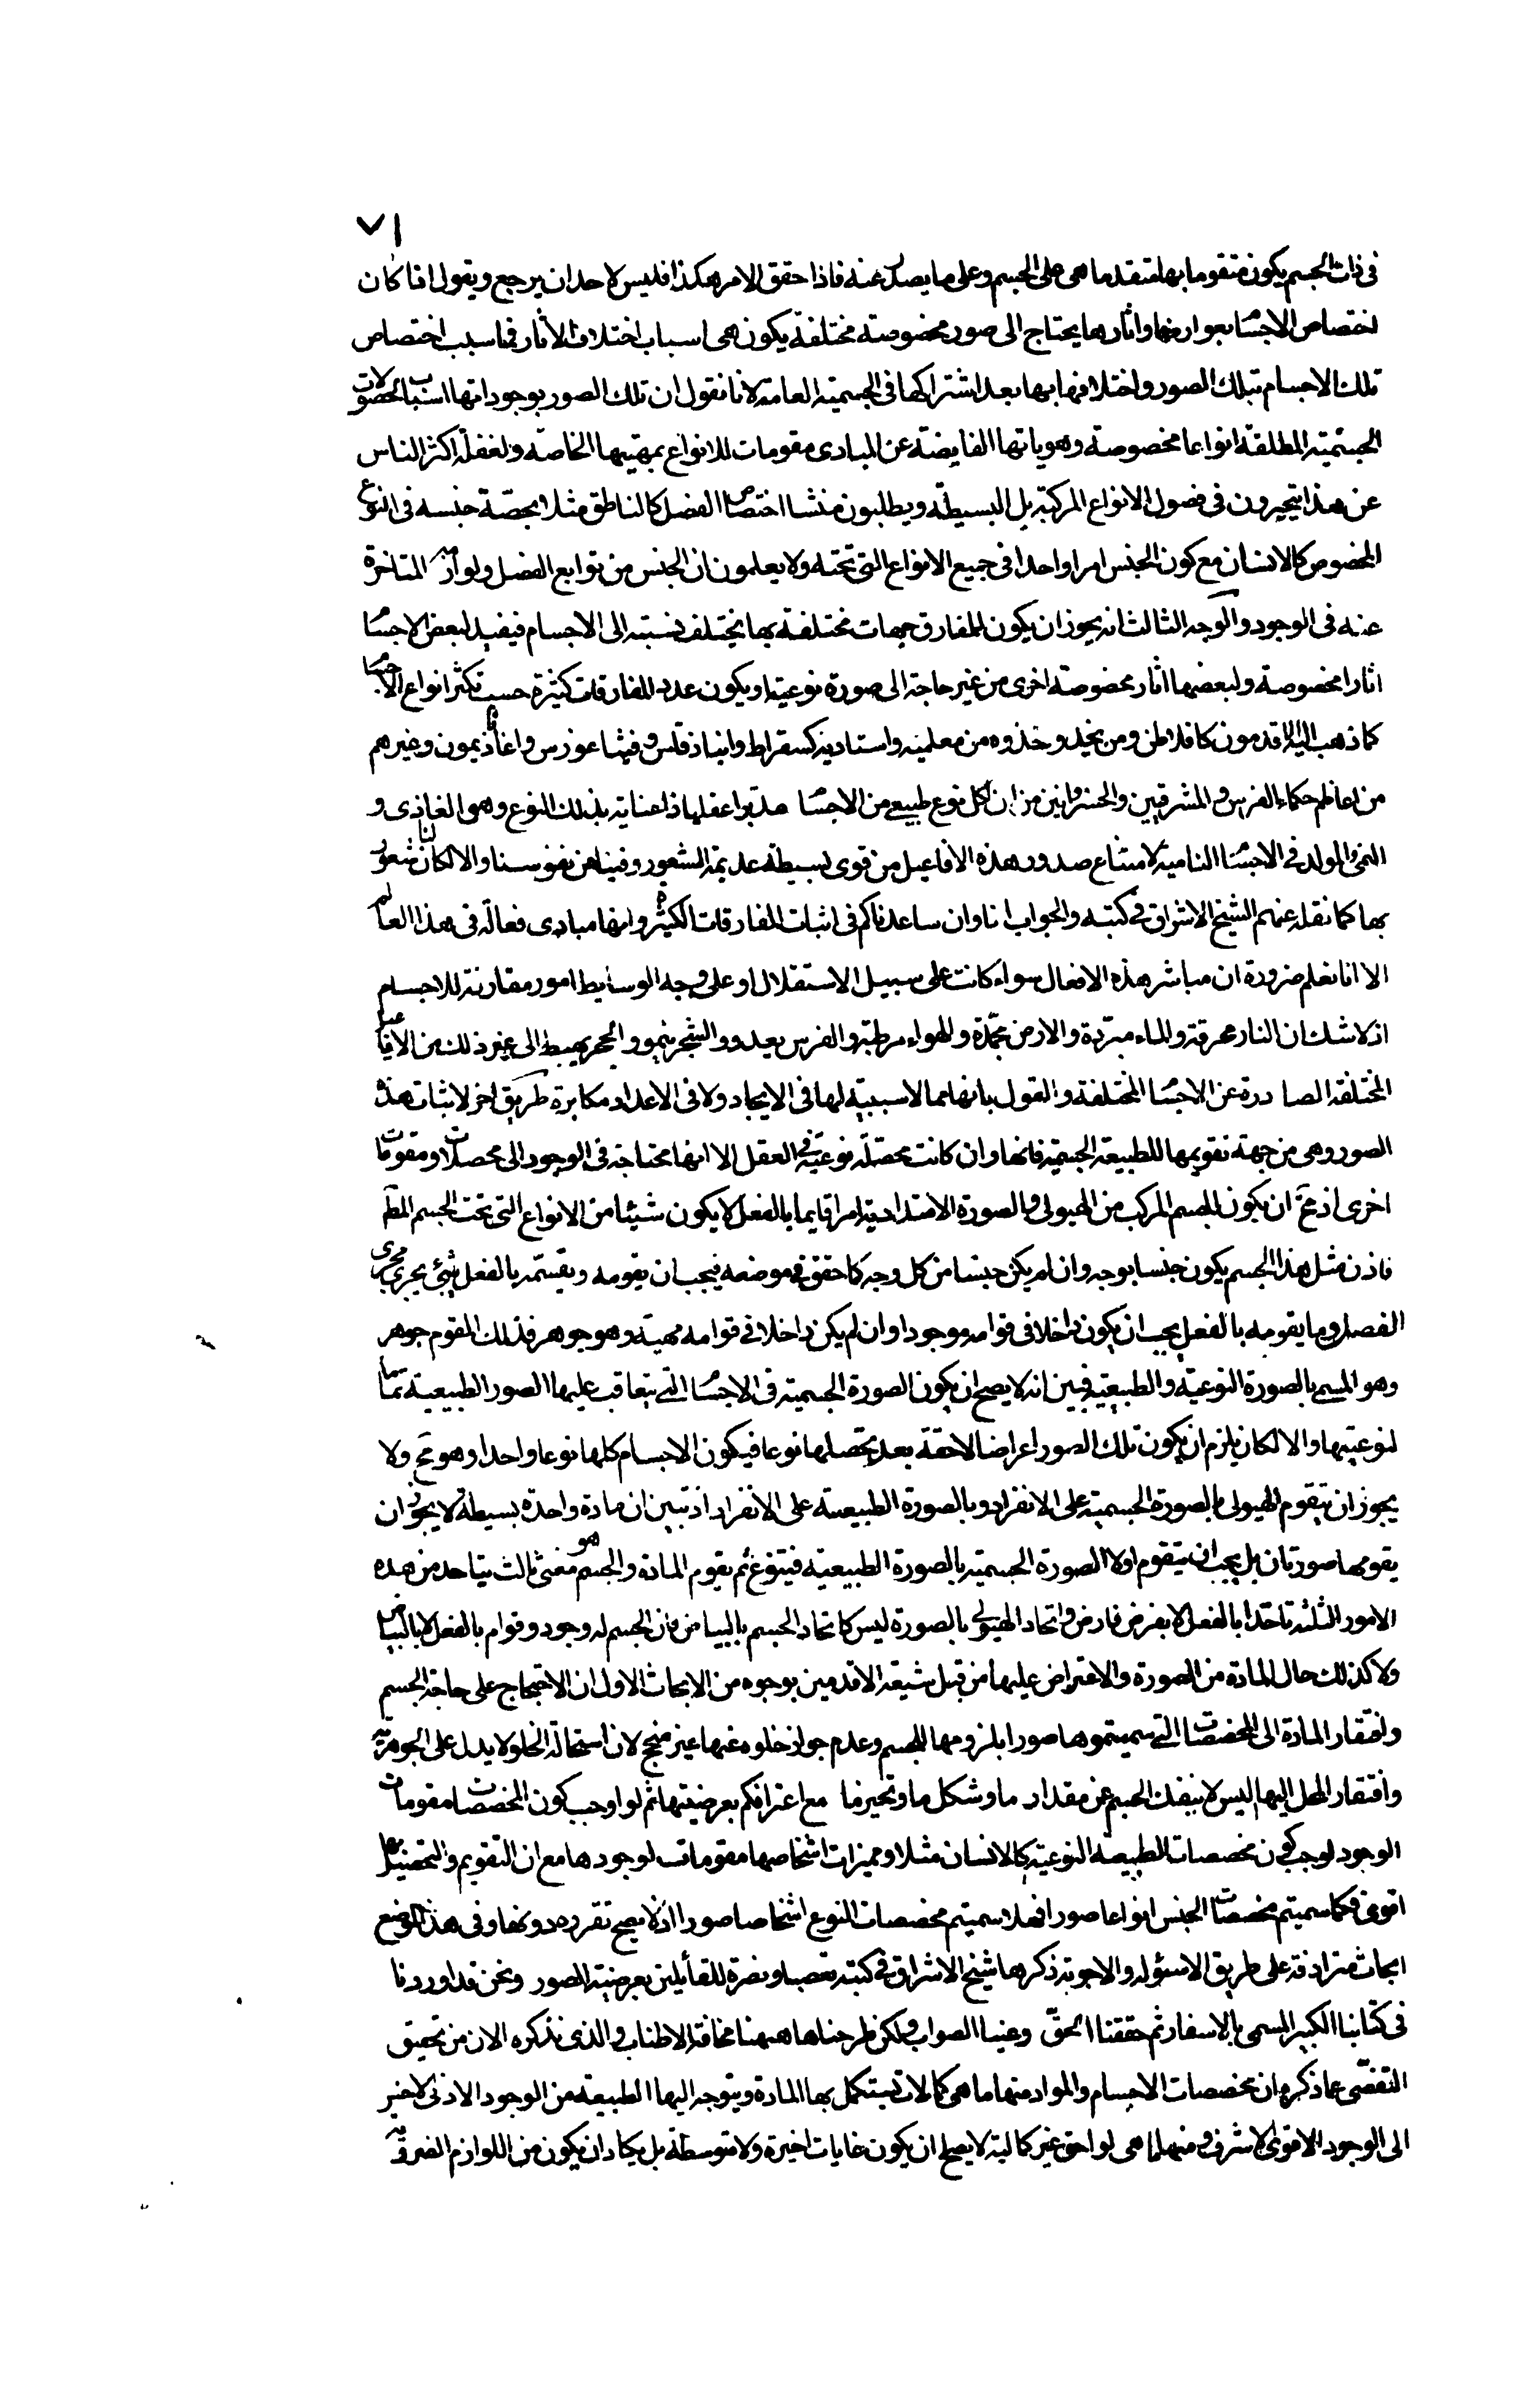 ٧١
فى ذات الجسم يكون متقوما بها متقدما هى على الجسم وعلى ما يصدر عنه فاذا حقق الامر هكذا فليس لاحد ان يرجع ويقول اذا كان
اختصاص الاجسام بعوارضها واثارها يحتاج الى صور مخصوصة مختلفة يكون هى اسباب اختلاف الاثار فما سبب اختصاص
تلك الاجسام بتلك الصور واختلافها بها بعد اشتراكها فى الجسمية العامة لانا نقول ان تلك الصور بوجوداتها اسباب لحصولات
الجسمية المطلقة انواعا مخصوصة وهوياتها الفايضة عن المبادى مقومات للانواع بمهيتها الخاصة ولغفلة اكثر الناس
عن هذا يتحيرون فى فصول الانواع المركبة بل البسيطة ويطلبون منشا اختصاص الفصل كالناطق مثلا بحصة جنسه فى النوع
المخصوص كالانسان مع كون الجنس امرا واحدا فى جميع الانواع التى تحته ولا يعلمون ان الجنس من توابع الفصل ولوازمه المتاخرة
عنه فى الوجود والوجه الثالث انه يجوز ان يكون للمفارق جهات مختلفة بها يختلف نسبته الى الاجسام فيفيد لبعض الاجسام
اثارا مخصوصة ولبعضها اثار مخصوصة اخرى من غير حاجة الى صورة نوعية او يكون عدد المفارقات كثيرة حسب تكثر انواع الاجسام
كما ذهب اليه الاقدمون كافلاطن ومن يحذو حذوه من معلميه واستاديه كسقراط وانباذقلس وفيثاغورس واغاثاذيمون وغيرهم
من اعاظم حكماء الفرس والمشرقيين والخسروانيين من ان لكل نوع طبيعى من الاجسام مدبرا عقليا ذا عناية بذلك النوع وهو الغاذى و
النمى والمولد فى الاجسام النامية لامتناع صدور هذه الافاعيل من قوى بسيطة عديمة الشعور وفينا عن نفوسنا والا لكان لنا شعور
بها كما نقله عنهم الشيخ الاشراق فى كتبه والجواب انا وان ساعدناكم فى اثبات المفارقات الكثيرة وانها مبادى فعالة فى هذا العالم
الا انا نعلم ضرورة ان مباشر هذه الافعال سواء كانت على سبيل الاستقلال او على وجه الوسايط امور مقارنة للاجسام
اذ لا شك ان النار محرقة والماء مبردة والارض مجمدة والهواء مرطبة والفرس يعدو والشجر ينمو والحجر يهبط الى غير ذلك من الافاعيل
المختلفة الصادرة عن الاجسام المختلفة والقول بانها مما لا سببية لها فى الايجاد ولا فى الاعداد مكابرة طريق اخر لاثبات هذه
الصور وهى من جهة تقويمها للطبيعة الجسمية فانها وان كانت محصلة نوعية فى العقل الا انها محتاجة فى الوجود الى محصلات ومقومات
اخرى اذ مح ان يكون الجسم المركب من الهيولى والصورة الامتدادية امرا قايما بالفعل لا يكون شيئا من الانواع التى تحت الجسم المط
فاذن مثل هذا الجسم يكون جنسا بوجه وان لم يكن جنسا من كل وجه كما حقق فى موضعه فيجب ان يقومه ويقسمه بالفعل شىء يجرى مجرى
الفصل وما يقومه بالفعل يجب ان يكون داخلا فى قوامه موجودا وان لم يكن داخلا فى قوامه مهية وهو جوهر فذلك المقوم جوهر
وهو المسمى بالصورة النوعية والطبيعية فبين انه لا يصح ان يكون الصورة الجسمية فى الاجسام التى يتعاقب عليها الصور الطبيعية تماما
لنوعيتها والا لكان يلزم ان يكون تلك الصور اعراضا لاحقة بعد تحصلها نوعا فيكون الاجسام كلها نوعا واحدا وهو مح ولا
يجوز ان يتقوم الهيولى بالصورة الجسمية على الانفراد وبالصورة الطبيعية على الانفراد اذ تبين ان مادة واحدة بسيطة لا يجوز ان
يقومها صورتان بل يجب ان يتقوم اولا الصورة الجسمية بالصورة الطبيعية فيتنوع ثم يقوم المادة والجسم هو معنى ثالث يتاحد من هذه
الامور الثلثة تاحدا بالفعل لا بفرض فارض واتحاد الهيولى بالصورة ليس كاتحاد الجسم بالبياض فان الجسم له وجود وقوام بالفعل لا بالبياض
ولا كذلك حال المادة من الصورة والاعتراض عليها من قبل شيعة الاقدمين بوجوه من الابحاث الاول ان الاحتجاج على حاجة الجسم
وافتقار المادة الى المخصصات التى سميتموها صورا بلزومها للجسم وعدم جواز خلوه عنها غير منجح لان استحالة الخلو لا يدل على الجوهرية
وافتقار المحل اليها اليس لا ينفك الجسم عن مقدار ما وشكل ما وتحيز ما مع اعترافكم بعرضيتها ثم لو اوجب كون المخصصات مقومات
الوجود لوجب كون مخصصات الطبيعة النوعية كالانسان مثلا ومميزات اشخاصها مقومات لوجودها مع ان التقويم والتحصيل بها
اقوى فكما سميتم مخصصات الجنس انواعا صورا فهلا سميتم مخصصات النوع اشخاصا صورا اذ لا يصح تقرره دونها وفى هذا الموضع
ابحاث مترادفة على طريق الاسئولة والاجوبة ذكرها شيخ الاشراق فى كتبه تعصبا ونصرة للقائلين بعرضية الصور ونحن قد اوردنا
فى كتابنا الكبير المسمى بالاسفار ثم حققنا الحق وعنينا الصواب ولكن طرحناها ههنا مخافة الاطناب والذى نذكره الان من تحقيق
التفصى عما ذكر هو ان مخصصات الاجسام والمواد منها ما هى كمالات يستكمل بها المادة ويتوجه اليها الطبيعة من الوجود الادنى الاخس
الى الوجود الاقوى الاشرف ومنها ما هى لواحق غير كمالية لا يصلح ان يكون غايات اخيرة ولا متوسطة بل يكاد ان يكون من اللوازم الضرورية